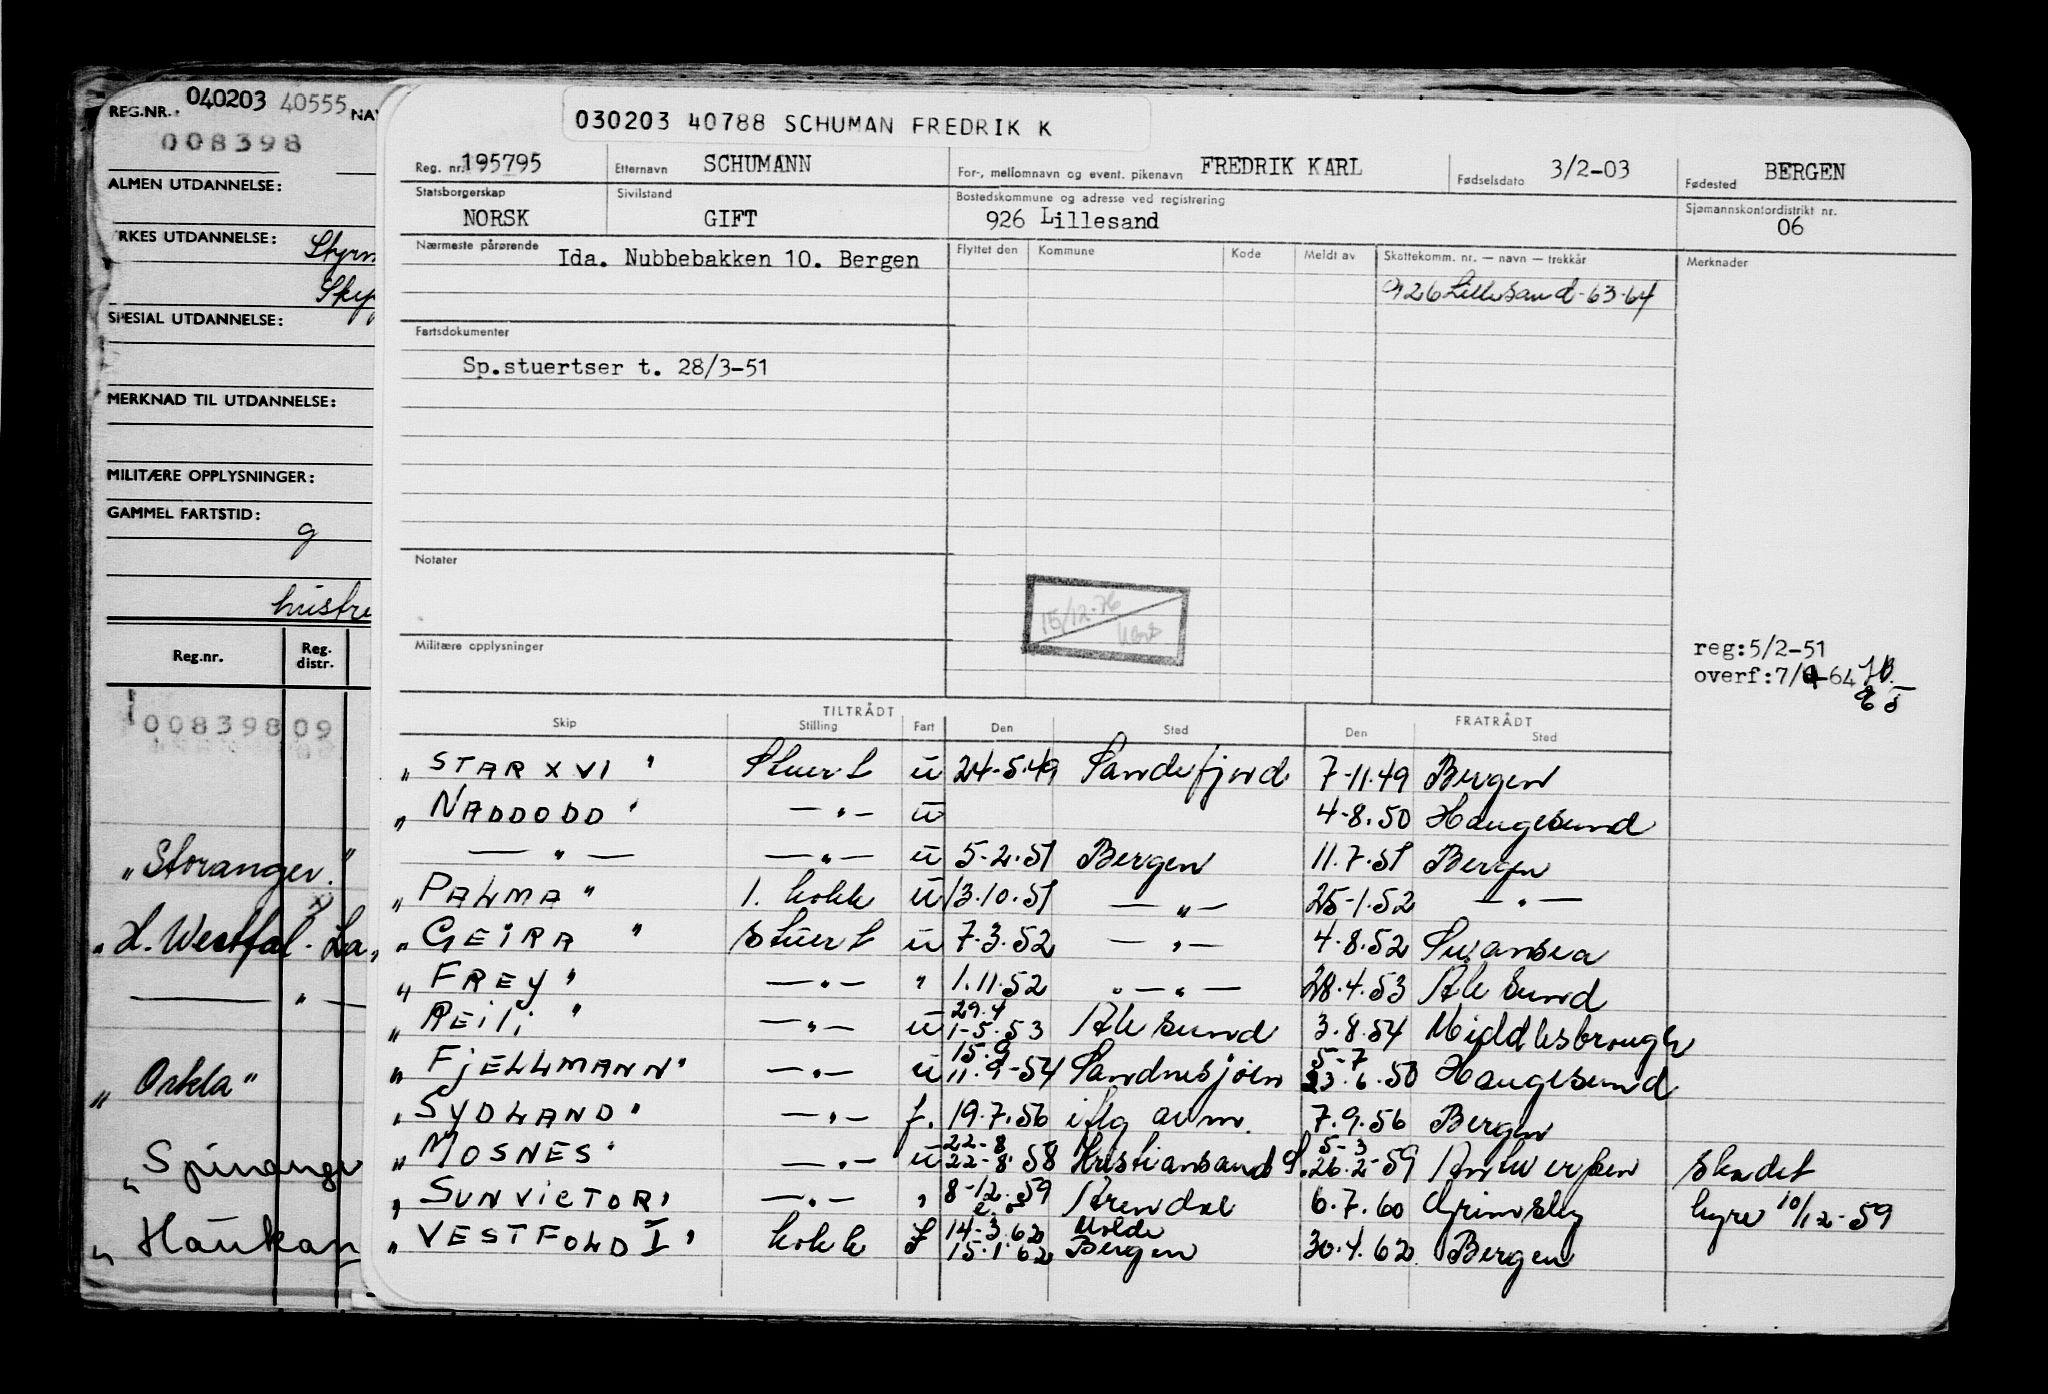 REG.NR. 040203 40555 NAV
008398
ALMEN UTDANNELSE:
RKES UTDANNELSE: Styrm
Skip
SPESIAL UTDANNELSE:
MERKNAD TIL UTDANNELSE:
MILITÆRE OPPLYSNINGER:
GAMMEL FARTSTID:
g
hustru
Reg.nr. Reg. distr.
008398 09
"Storanger"
"L. Westfal-La
— " —
"Orkla"
"Spinanger
"Haukan
030203 40788 SCHUMAN FREDRIK K
Reg. nr. 195795 Etternavn SCHUMANN For-, mellomnavn og event. pikenavn FREDRIK KARL Fødselsdato 3/2-03 Fødested BERGEN
Statsborgerskap NORSK Sivilstand GIFT Bostedskommune og adresse ved registrering 926 Lillesand Sjømannskontordistrikt nr. 06
Nærmeste pårørende Ida. Nubbebakken 10. Bergen Flyttet den Kommune Kode Meldt av Skattekomm. nr. — navn — trekkår Merknader
926 Lillesand-63-64
Fartsdokumenter
Sp.stuertser t. 28/3-51
Notater
15/12-76
Militære opplysninger
reg:5/2-51
overf:7/4-64
TILTRÅDT FRATRÅDT
Skip Stilling Fart Den Sted Den Sted
"STAR XVI" Stuert u 24-5-49 Sandefjord 7-11.49 Bergen
"NADDODD" — " — u 4-8.50 Haugesund
— " — — " — u 5-2.51 Bergen 11.7.51 Bergen
"PALMA" 1. kokk u 13.10.51 — " — 25-1.52 — " —
"GEIRA" stuert u 7.3.52 — " — 4.8.52 Swansea
"FREY" — " — " 1.11.52 " — " — 28.4.53 Ålesund
"REILI" — " — u 29.4 1-5.53 Ålesund 3.8.54 Middlesbrough
"FJELLMANN" — " — u 15.9 11.9-54 Sandnesjøen 5-7 23.6.50 Haugesund
"SYDLAND" — " — f. 19.7.56 iflg avm. 7.9.56 Bergen
"MOSNES" — " — u 22-8 22-8 58 Kristiansand S. 5-3 26.2-59 Antwerpen skadet
"SUNVICTORI — " — " 8-12.59 Arendal 6.7.60 Grimsby hyre 10/12-59
"VESTFOLD I" kokk f 14-3.62 15.1.62 Molde Bergen 30.4.62 Bergen